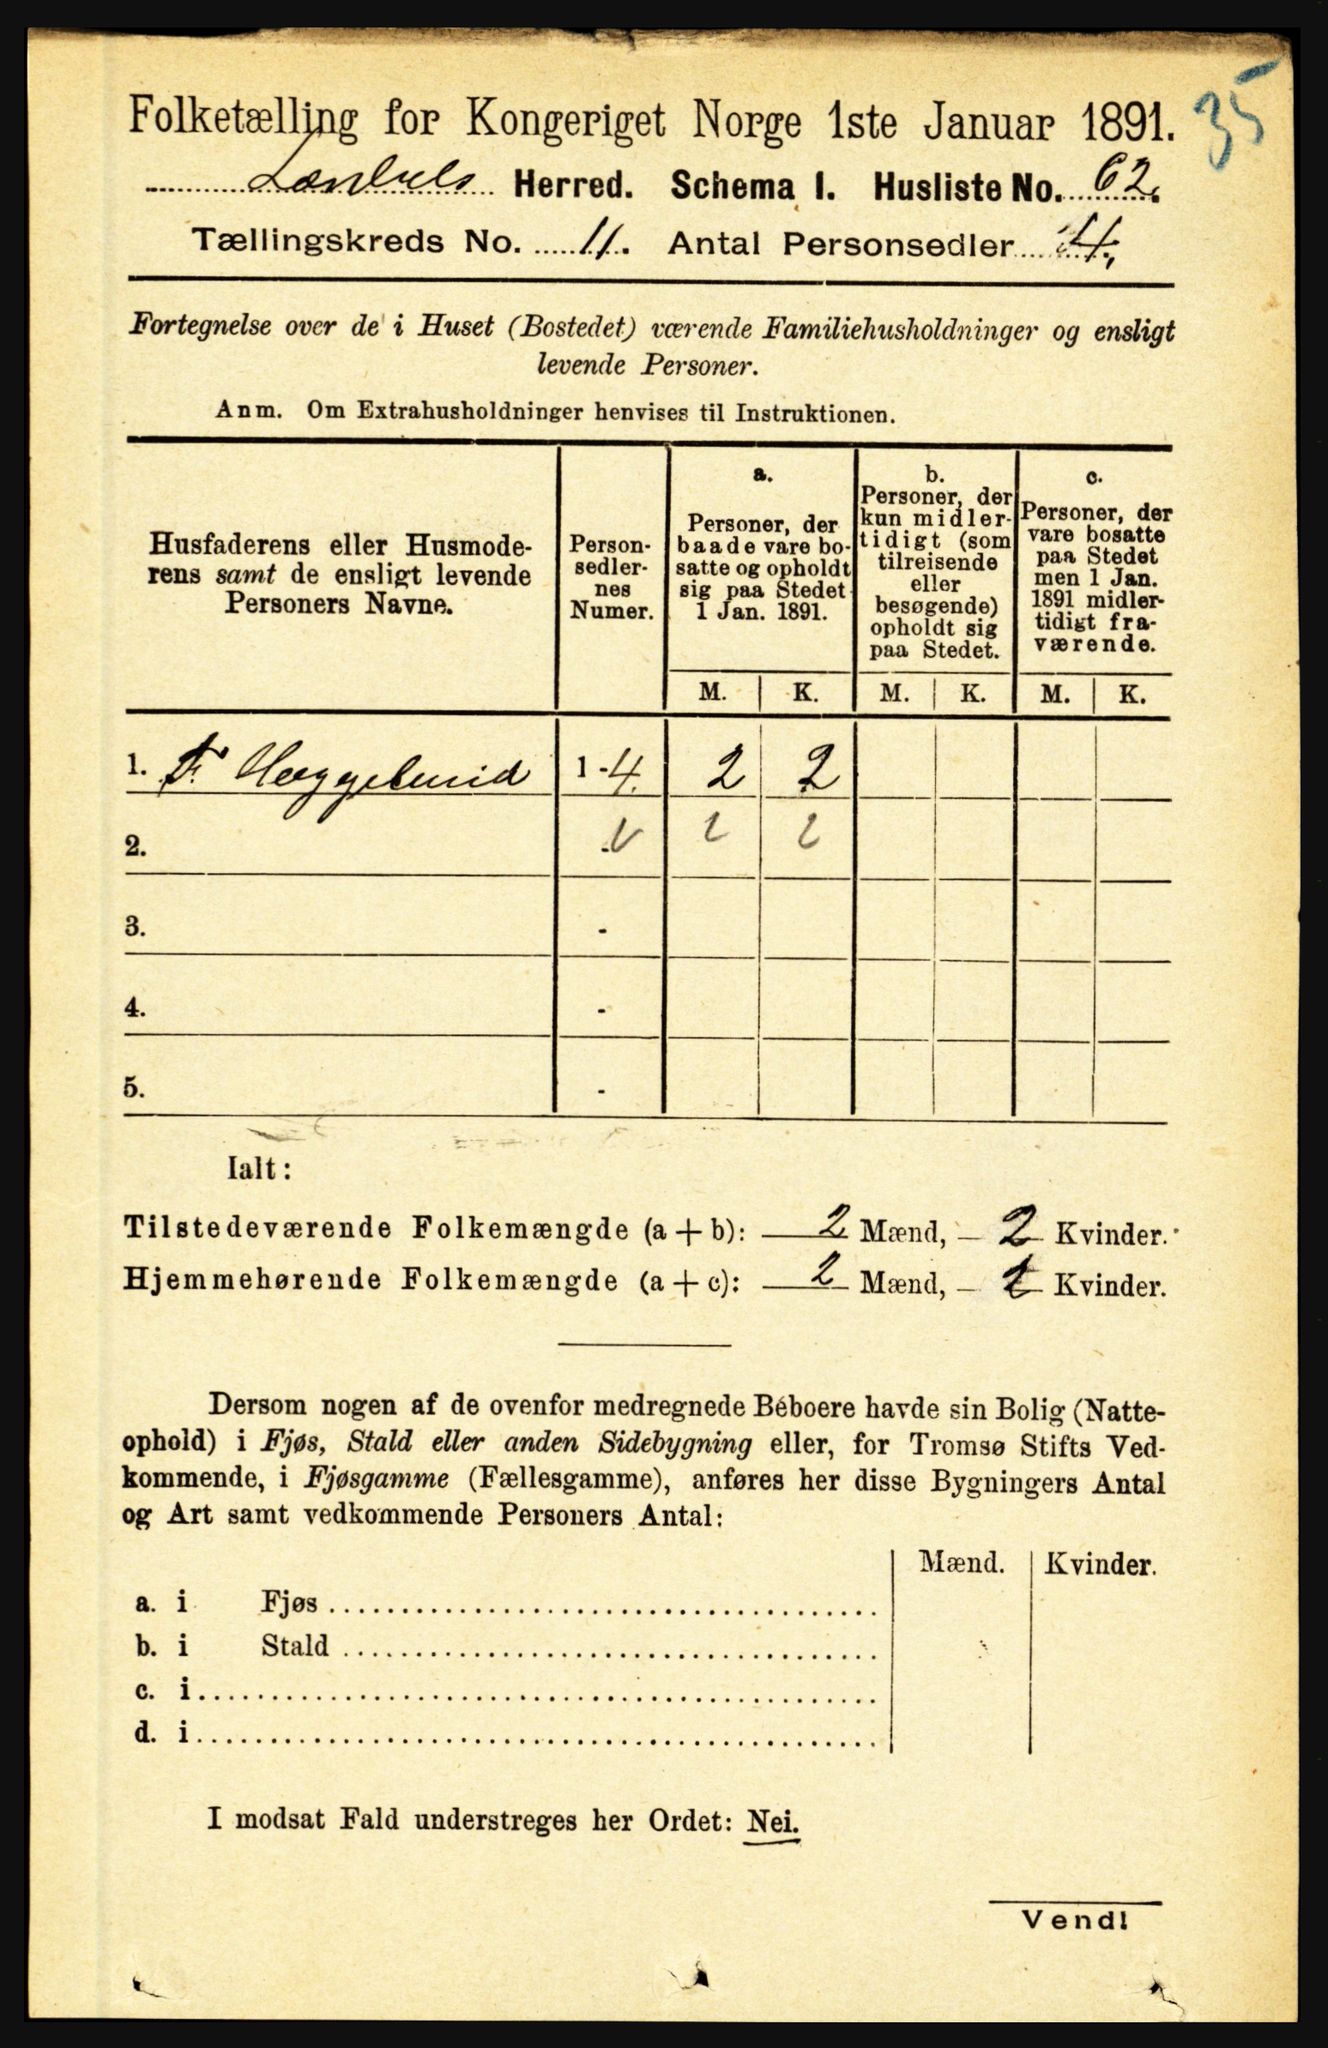 35
Folketælling for Kongeriget Norge 1ste Januar 1891.
Herred. Schema I. Husliste No. 62.
Tællingskreds No. 11. Antal Personsedler 4.
Fortegnelse over de i Huset (Bostedet) værende Familiehusholdninger og ensligt
levende Personer.
Anm. Om Extrahusholdninger henvises til Instruktionen.
Husfaderens eller Husmode-
rens samt de ensligt levende
Personers Navne.
Person-
sedler-
nes
Numer.
a.
Personer, der
baade vare bo-
satte og opholdt
sig paa Stedet
1 Jan. 1891.
b.
Personer, der
kun midler-
tidigt (som
tilreisende
eller
besøgende)
opholdt sig
paa Stedet.
c.
Personer, der
vare bosatte
paa Stedet
men 1 Jan.
1891 midler-
tidigt fra-
værende.
M. K. M. K. M. K.
1. F. Heggelund 1-4. 2 2
2.
3. -
4. -
5. -
Ialt:
Tilstedeværende Folkemængde (a + b): 2 Mænd, - 2 Kvinder.
Hjemmehørende Folkemængde (a + c): 2 Mænd, - 2 Kvinder.
Dersom nogen af de ovenfor medregnede Beboere havde sin Bolig (Natte-
ophold) i Fjøs, Stald eller anden Sidebygning eller, for Tromsø Stifts Ved-
kommende, i Fjøsgamme (Fællesgamme), anføres her disse Bygningers Antal
og Art samt vedkommende Personers Antal:
Mænd. Kvinder.
a. i Fjøs
b. i Stald
c. i
d. i
I modsat Fald understreges her Ordet: Nei.
Vend!